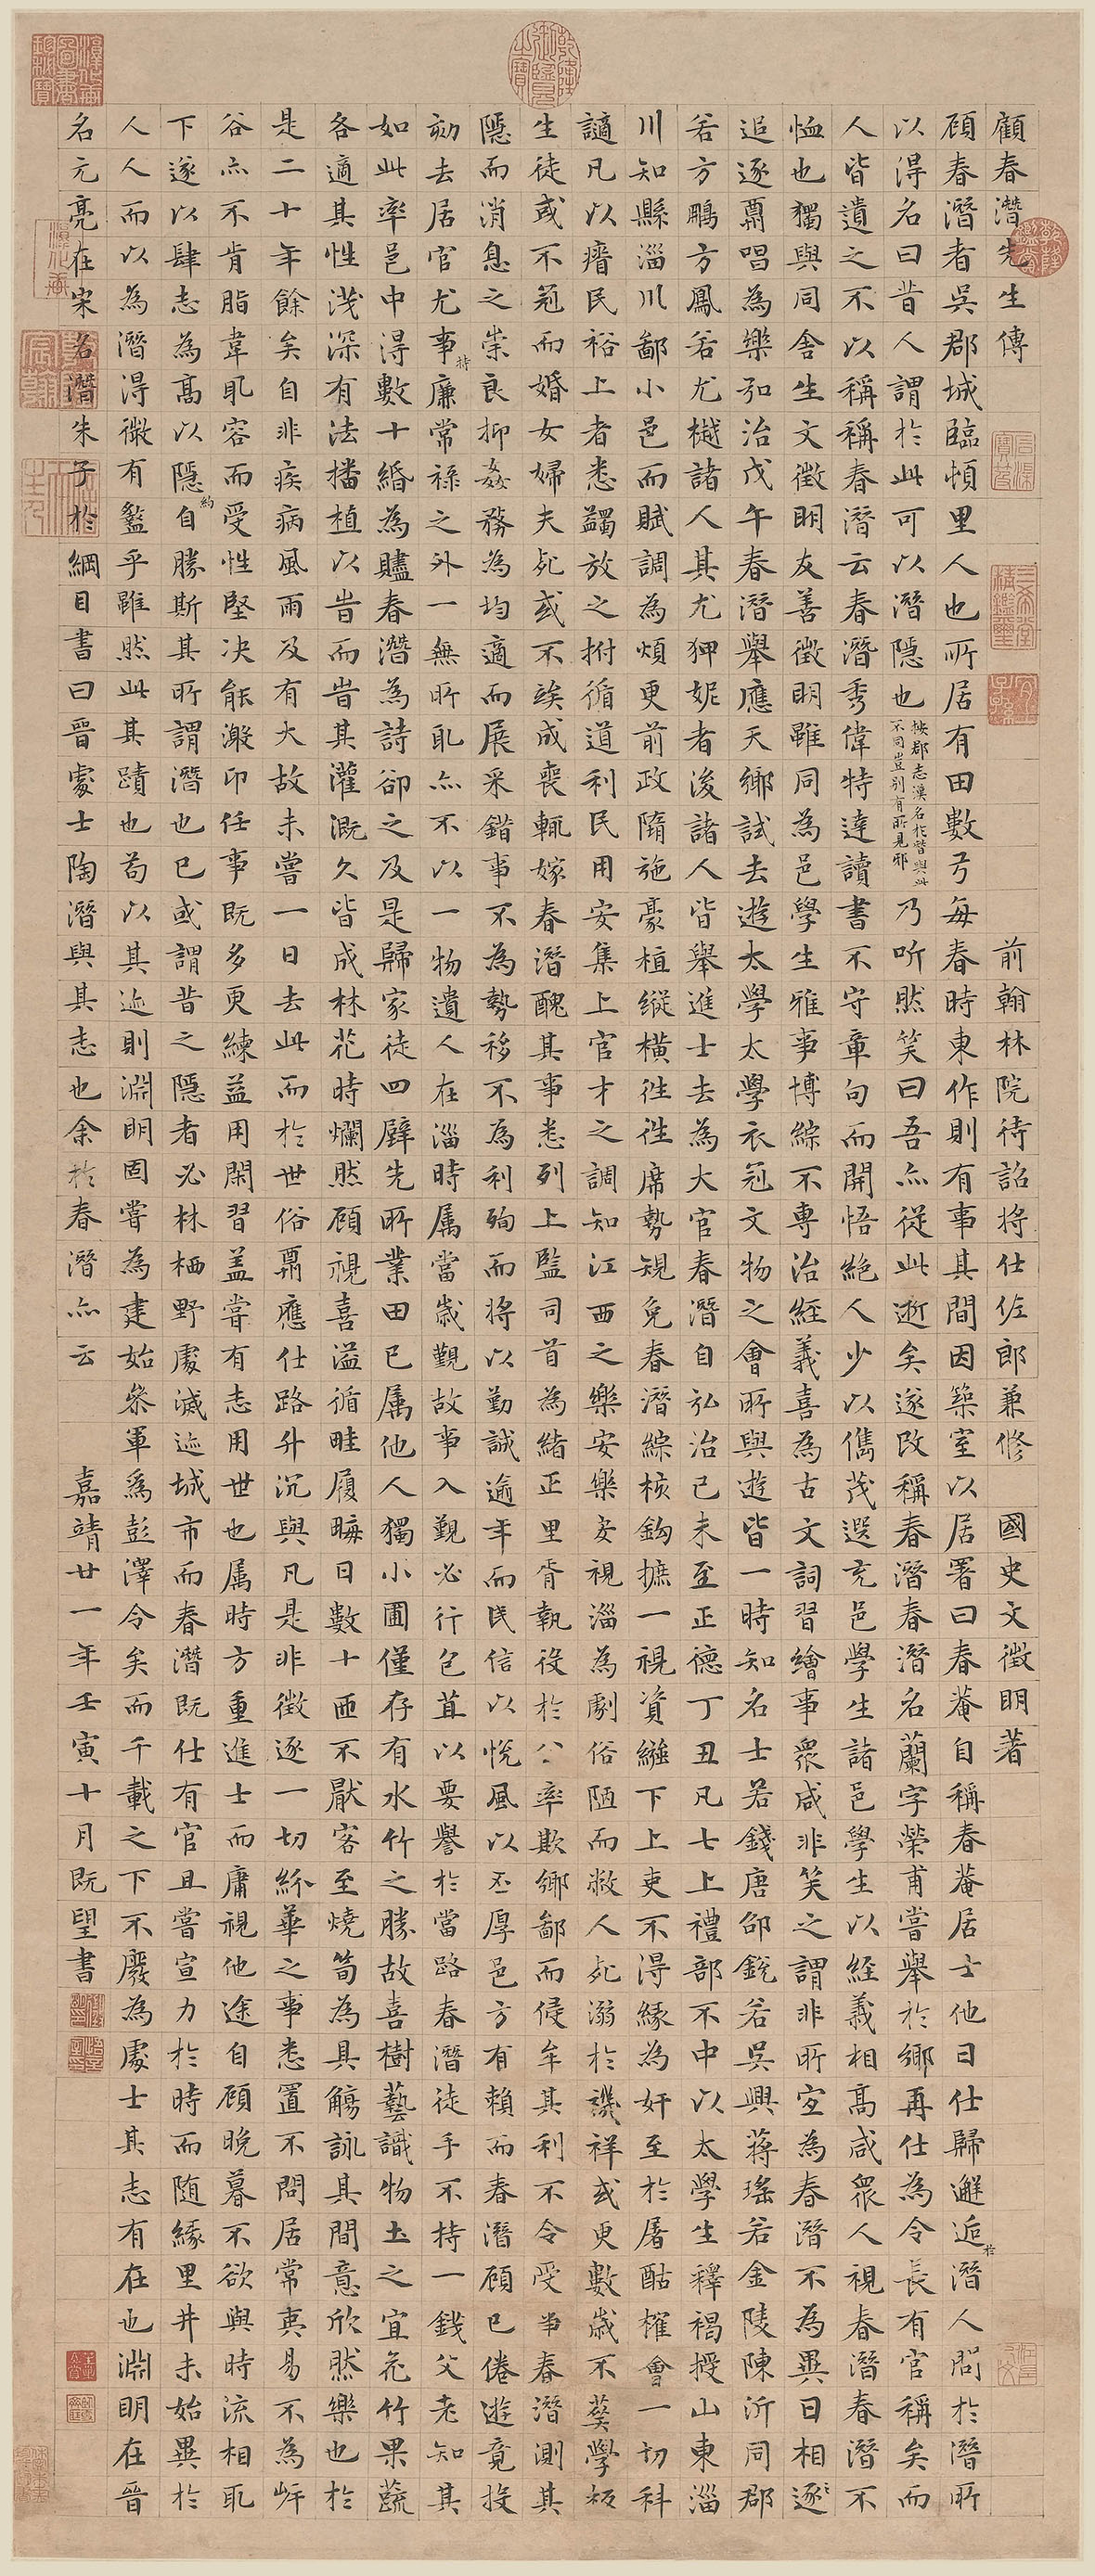 顧春潛先生傳 前翰林院待詔將仕佐郎兼修 國史文徵明著
顧春潛者吳郡城臨頓里人也所居有田數弓每春時東作則有事其間因築室以居署曰春菴自稱春菴居士他日仕歸邂逅於潛人問於潛所
以得名曰昔人謂於此可以潛隱也按郡志漢名於朁與此不同豈別有所見邪乃听然笑曰吾亦從此逝矣遂改稱春潛春潛名蘭字榮甫嘗舉於鄉再仕為令長有官稱矣而
人皆遺之不以稱稱春潛云春潛秀偉特達讀書不守章句而開悟絕人少以儁茂選充邑學生諸邑學生以經義相高咸眾人視春潛春潛不
恤也獨與同舍生文徵明友善徵明雖同為邑學生雅事博綜不專治經義喜為古文詞習繪事眾咸非笑之謂非所宜為春潛不為異日相逐
追逐鬻唱為樂弘治戊午春潛舉應天鄉試去遊太學太學衣冠文物之會所與遊皆一時知名士若錢唐邵銳若吳興蔣瑤若金陵陳沂同郡
若方鵬方鳳若尤樾諸人其尤狎妮者後諸人皆舉進士去為大官春潛自弘治己未至正德丁丑凡七上禮部不中以太學生釋褐授山東淄
川知縣淄川鄙小邑而賦調為煩更前政隋施豪植縱橫往往席勢規免春潛綜核鉤摭一視資繇下上吏不得緣為奸至於屠酤榷會一切科
讁凡以瘠民裕上者悉蠲放之拊循道利民用安集上官才之調知江西之樂安樂安視淄為劇俗陋而敝人死溺於禨祥或更數歲不葬學板
生徒或不冠而婚女婦夫死或不竢成喪輒嫁春潛醜其事悉列上監司首為緒正里胥執役於公率欺鄉鄙而侵牟其利不令受事春潛測其
隱而消息之崇良抑姦務為均適而展采錯事不為勢移不為利殉而將以勤誠逾年而民信以悅風以丕厚邑方有賴而春潛顧已倦遊竟投
劾去居官尤事持廉常祿之外一無所取亦不以一物遺人在淄時属當歲覲故事入覲必行苞苴以要譽於當路春潛徒手不持一錢父老知其
如此率邑中得數十緡為贐春潛為詩卻之及是歸家徒四壁先所業田已属他人獨小圃僅存有水竹之勝故喜樹藝識物土之宜花竹果蔬
各適其性淺深有法播植以旹而旹其灌溉久皆成林花時爛然顧視喜溢循畦履畮日數十匝不厭客至燒筍為具觴詠其間意欣然樂也於
是二十年餘矣自非疾病風雨及有大故未嘗一日去此而於世俗鬻應仕路升沉與凡是非徵逐一切紛華之事悉置不問居常夷易不為岍
谷亦不肯脂韋取容而受性堅決能激卬任事既多更練益用閑習蓋嘗有志用世也属時方重進士而庸視他途自顧晚暮不欲與時流相取
下遂以肆志為高以隱約自勝斯其所謂潛也已或謂昔之隱者必林栖野處滅迹城市而春潛既仕有官且嘗宣力於時而随緣里井未始異於
人人而以為潛得微有盭乎雖然此其蹟也苟以其迹則淵明固嘗為建始參軍為彭澤令矣而千載之下不廢為處士其志有在也淵明在晉
名元亮在宋名潛朱子於綱目書曰晉處士陶潛與其志也余於春潛亦云 嘉靖廿一年壬寅十月既望書